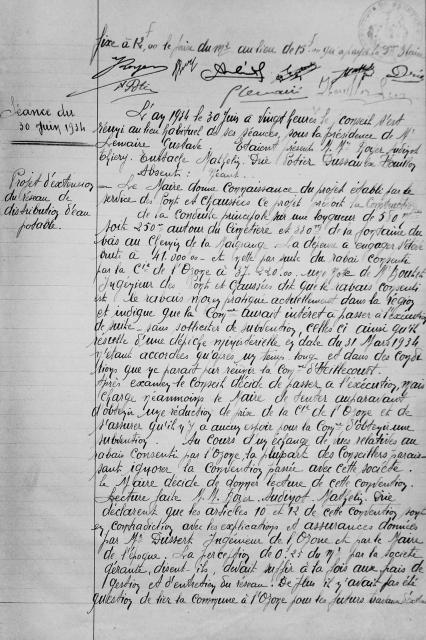 fixe à 12f,00 le prix du m2 au lieu de 15f
Séance du
30 Juin 1934
L'an 1934 le 30 Juin à vingt heures le conseil s'est
réuni au lieu habituel de ses séances, sous la présidence de Mr
Lemaire Gustave. Étaient présents M.M. Royer
Thiery. Eustache
Absents: Néant.
Projet d'extension
du réseau de
distribution d'eau
potable.
Le Maire donne connaissance du projet établi par le
service des Ponts et Chaussées ce projet prévoit la construction
de la conduite principale sur une longueur de 580 m
soit 250m autour du Cimetière et 330m de la fontaine du
bas au Chemin de la La dépense à engager s'élève
brute à 41.000.00 et nette par suite du rabais consenti
par la Cie de l'Ozone à 37.220.00. Une note de Mr
Ingénieur des Ponts et Chaussées dit que le rabais consenti
est le rabais moyen pratiqué actuellement dans la région
et indique que la Comne aurait intérêt à passer à l'exécution
de suite sans solliciter de subvention, celles ci ainsi qu'il
résulte d'une dépêche ministérielle en date du 31 Mars 1934
n'étant accordées qu'après un temps long et dans des condi
tions que ne paraît pas réunir la Comne d'Heillecourt.
Après examen le Conseil décide de passer à l'exécution, mais
charge néanmoins le Maire de tenter auparavant
d'obtenir une réduction de prix de la Cie de l'Ozone et de
s'assurer qu'il n'y a aucun espoir pour la Comne d'obtenir une
subvention. Au cours d'un échange de vues relatives au
rabais consenti par l'Ozone, la plupart des Conseillers parais-
sant ignorer la Convention passée avec cette société
le Maire décide de donner lecture de cette convention.
Lecture faite M.M. Royer.
déclarent que les articles 10 et 12 de cette convention sont
en contradiction avec les explications et assurances données
par Mr Dussert Ingénieur de l'Ozone et par le Maire
de l'époque. La perception de 0f.25 du M3 par la société
gérante, disent ils, devait suffire à la fois aux frais de
gestion et d'entretien du réseau. De plus il n'avait pas été
question de lier la commune à l'Ozone pour les futurs travaux